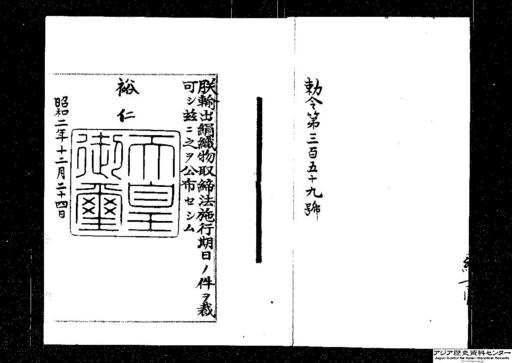 勅令第三百五十九號
朕輸出絹織物取締法施行期日ノ件ヲ裁
可シ茲ニ之ヲ公布セシム
裕仁
天皇
御璽
昭和二年十二月二十四日
アジア歴史資料センター
Japan Center for Asian Historical Records